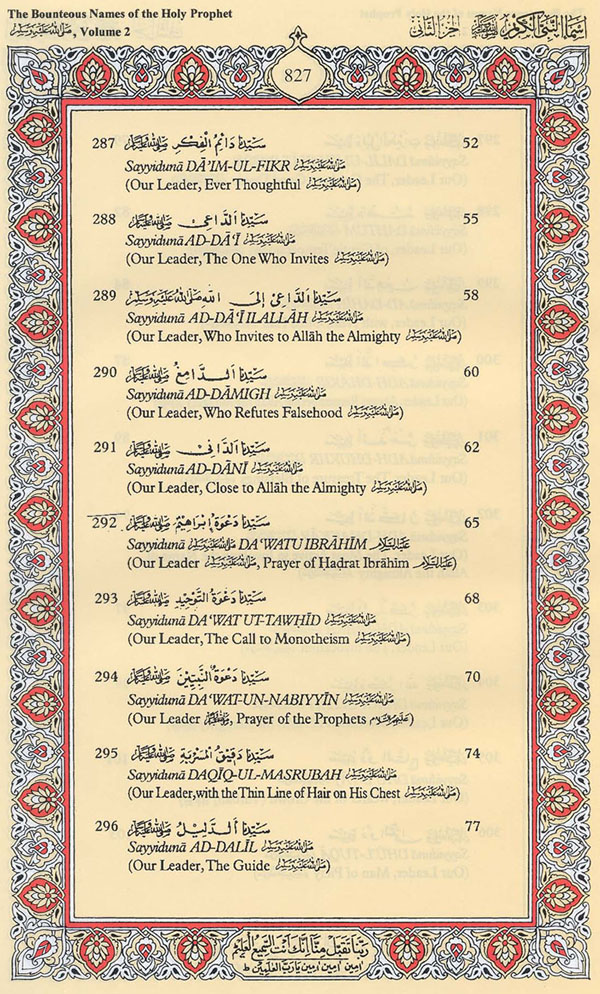 The Bounteous Names of the Holy Prophet
ﷺ, Volume 2
اسماء النبي الكريم ﷺ الجزء الثاني
827
287 سَيِّدُنَا دَائِمُ الْفِكْرِ ﷺ 52
Sayyidunā DĀ'IM-UL-FIKR ﷺ
(Our Leader, Ever Thoughtful ﷺ)
288 سَيِّدُنَا الدَّاعِيْ ﷺ 55
Sayyidunā AD-DĀ‘Ī ﷺ
(Our Leader, The One Who Invites ﷺ)
289 سَيِّدُنَا الدَّاعِيْ إِلَى اللهِ ﷺ 58
Sayyidunā AD-DĀ‘Ī ILALLĀH ﷺ
(Our Leader, Who Invites to Allāh the Almighty ﷺ)
290 سَيِّدُنَا الدَّامِغُ ﷺ 60
Sayyidunā AD-DĀMIGH ﷺ
(Our Leader, Who Refutes Falsehood ﷺ)
291 سَيِّدُنَا الدَّانِيْ ﷺ 62
Sayyidunā AD-DĀNĪ ﷺ
(Our Leader, Close to Allāh the Almighty ﷺ)
292 سَيِّدُنَا دَعْوَةُ إِبْرَاهِيْمَ ﷺ 65
Sayyidunā ﷺ DA‘WATU IBRĀHĪM عليه السلام
(Our Leader ﷺ, Prayer of Ḥaḍrat Ibrāhīm عليه السلام)
293 سَيِّدُنَا دَعْوَةُ التَّوْحِيْدِ ﷺ 68
Sayyidunā DA‘WAT UT-TAWḤĪD ﷺ
(Our Leader, The Call to Monotheism ﷺ)
294 سَيِّدُنَا دَعْوَةُ النَّبِيِّيْنَ ﷺ 70
Sayyidunā DA‘WAT-UN-NABIYYĪN ﷺ
(Our Leader ﷺ, Prayer of the Prophets عليهم السلام)
295 سَيِّدُنَا دَقِيْقُ الْمَسْرُبَةِ ﷺ 74
Sayyidunā DAQĪQ-UL-MASRUBAH ﷺ
(Our Leader, with the Thin Line of Hair on His Chest ﷺ)
296 سَيِّدُنَا الدَّلِيْلُ ﷺ 77
Sayyidunā AD-DALĪL ﷺ
(Our Leader, The Guide ﷺ)
رَبَّنَا تَقَبَّلْ مِنَّا إِنَّكَ أَنْتَ السَّمِيْعُ الْعَلِيْمُ
اٰمِيْن اٰمِيْن اٰمِيْن يَا رَبَّ الْعٰلَمِيْنَ ط